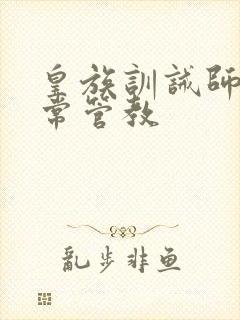 皇族訓誡師
常管教
亂步非魚